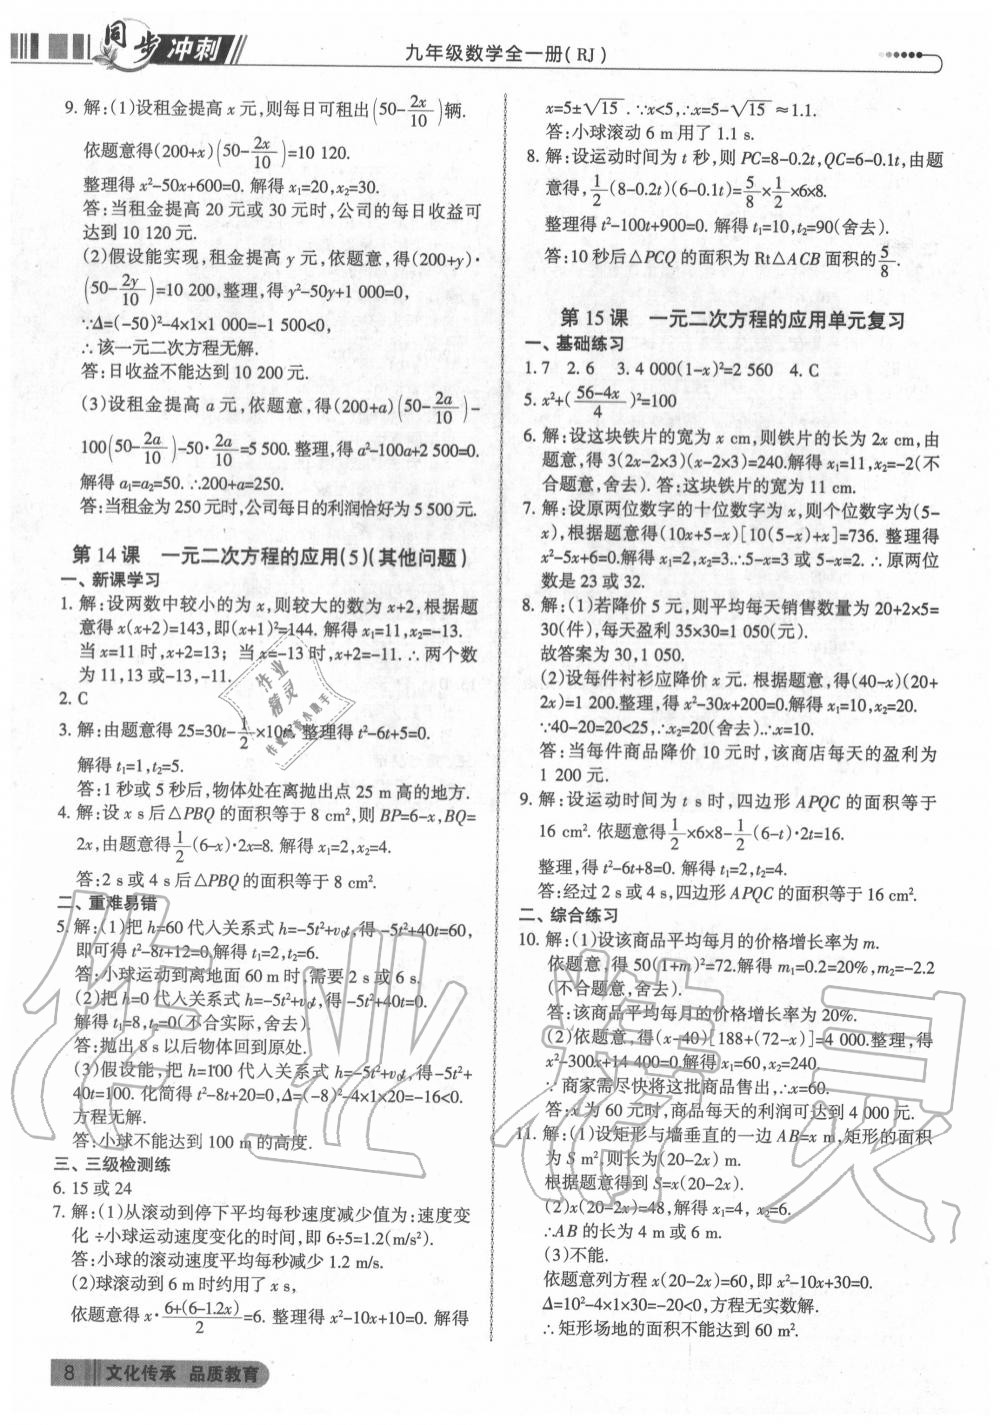 同步冲刺
九年级数学全一册(RJ)
9. 解:(1)设租金提高 x 元,则每日可租出(50-2x/10)辆.
依题意得(200+x)(50-2x/10)=10 120.
整理得 x²-50x+600=0. 解得 x₁=20,x₂=30.
答:当租金提高 20 元或 30 元时,公司的每日收益可
达到 10 120 元.
(2)假设能实现,租金提高 y 元,依题意,得(200+y)·
(50-2y/10)=10 200,整理,得 y²-50y+1 000=0,
∵Δ=(-50)²-4×1×1 000=-1 500<0,
∴该一元二次方程无解.
答:日收益不能达到 10 200 元.
(3)设租金提高 a 元,依题意,得(200+a)(50-2a/10)-
100(50-2a/10)-50·2a/10=5 500. 整理,得 a²-100a+2 500=0.
解得 a₁=a₂=50. ∴200+a=250.
答:当租金为 250 元时,公司每日的利润恰好为 5 500元.
第 14 课 一元二次方程的应用(5)(其他问题)
一、新课学习
1. 解:设两数中较小的为 x,则较大的数为 x+2,根据题
意得 x(x+2)=143,即(x+1)²=144. 解得 x₁=11,x₂=-13.
当 x=11 时,x+2=13; 当 x=-13 时,x+2=-11. ∴两个数
为 11,13 或-13,-11.
2. C
3. 解:由题意得 25=30t-1/2×10t². 整理得 t²-6t+5=0.
解得 t₁=1,t₂=5.
答:1 秒或 5 秒后,物体处在离抛出点 25 m 高的地方.
4. 解:设 x s 后△PBQ 的面积等于 8 cm²,则 BP=6-x,BQ=
2x,由题意得 1/2(6-x)·2x=8. 解得 x₁=2,x₂=4.
答:2 s 或 4 s 后△PBQ 的面积等于 8 cm².
二、重难易错
5. 解:(1)把 h=60 代入关系式 h=-5t²+v₀t,得-5t²+40t=60,
即可得 t²-8t+12=0,解得 t₁=2,t₂=6.
答:小球运动到离地面 60 m 时,需要 2 s 或 6 s.
(2)把 h=0 代入关系式 h=-5t²+v₀t,得-5t²+40t=0.
解得 t₁=8,t₂=0(不合实际,舍去).
答:抛出 8 s 以后物体回到原处.
(3)假设能,把 h=100 代入关系式 h=-5t²+v₀t,得-5t²+
40t=100. 化简得 t²-8t+20=0,Δ=(-8)²-4×1×20=-16<0.
方程无解.
答:小球不能达到 100 m 的高度.
三、三级检测练
6. 15 或 24
7. 解:(1)从滚动到停下平均每秒速度减少值为:速度变
化÷小球运动速度变化的时间,即 6÷5=1.2(m/s²).
答:小球的滚动速度平均每秒减少 1.2 m/s.
(2)球滚动到 6 m 时约用了 x s,
依题意得 x·6+(6-1.2x)/2=6. 整理得 x²-10x+10=0. 解得
x=5±√15 . ∵x<5,∴x=5-√15 ≈1.1.
答:小球滚动 6 m 用了 1.1 s.
8. 解:设运动时间为 t 秒,则 PC=8-0.2t,QC=6-0.1t,由题
意得,1/2(8-0.2t)(6-0.1t)=5/8×1/2×6×8.
整理得 t²-100t+900=0. 解得 t₁=10,t₂=90(舍去).
答:10 秒后△PCQ 的面积为 Rt△ACB 面积的5/8.
第 15 课 一元二次方程的应用单元复习
一、基础练习
1. 7 2. 6 3. 4 000(1-x)²=2 560 4. C
5. x²+(56-4x/4)²=100
6. 解:设这块铁片的宽为 x cm,则铁片的长为 2x cm,由
题意,得 3(2x-2×3)(x-2×3)=240.解得 x₁=11,x₂=-2(不
合题意,舍去). 答:这块铁片的宽为 11 cm.
7. 解:设原两位数字的十位数字为 x,则个位数字为(5-
x),根据题意得(10x+5-x)[10(5-x)+x]=736. 整理得
x²-5x+6=0.解得 x₁=2,x₂=3.∴5-x=3 或 5-x=2. ∴原两位
数是 23 或 32.
8. 解:(1)若降价 5 元,则平均每天销售数量为 20+2×5=
30(件),每天盈利 35×30=1 050(元).
故答案为 30,1 050.
(2)设每件衬衫应降价 x 元. 根据题意,得(40-x)(20+
2x)=1 200.整理,得 x²-30x+200=0.解得 x₁=10,x₂=20.
∵40-20=20<25,∴x₂=20(舍去).∴x=10.
答:当每件商品降价 10 元时,该商店每天的盈利为
1 200 元.
9. 解:设运动时间为 t s 时,四边形 APQC 的面积等于
16 cm². 依题意得 1/2×6×8-1/2(6-t)·2t=16.
整理,得 t²-6t+8=0. 解得 t₁=2,t₂=4.
答:经过 2 s 或 4 s,四边形 APQC 的面积等于 16 cm².
二、综合练习
10. 解:(1)设该商品平均每月的价格增长率为 m.
依题意,得 50(1+m)²=72.解得 m₁=0.2=20%,m₂=-2.2
(不合题意,舍去).
答:该商品平均每月的价格增长率为 20%.
(2)依题意,得(x-40)[188+(72-x)]=4 000.整理,得
x²-300x+14 400=0.解得 x₁=60,x₂=240.
∵商家需尽快将这批商品售出,∴x=60.
答:x 为 60 元时,商品每天的利润可达到 4 000 元.
11. 解:(1)设矩形与墙垂直的一边 AB=x m,矩形的面积
为 S m²,则长为(20-2x) m.
根据题意得到 S=x(20-2x).
(2)x(20-2x)=48,解得 x₁=4, x₂=6.
∴AB 的长为 4 m 或 6 m.
(3)不能.
依题意列方程 x(20-2x)=60,即 x²-10x+30=0.
Δ=10²-4×1×30=-20<0,方程无实数解.
∴矩形场地的面积不能达到 60 m².
8 文化传承 品质教育
作业精灵